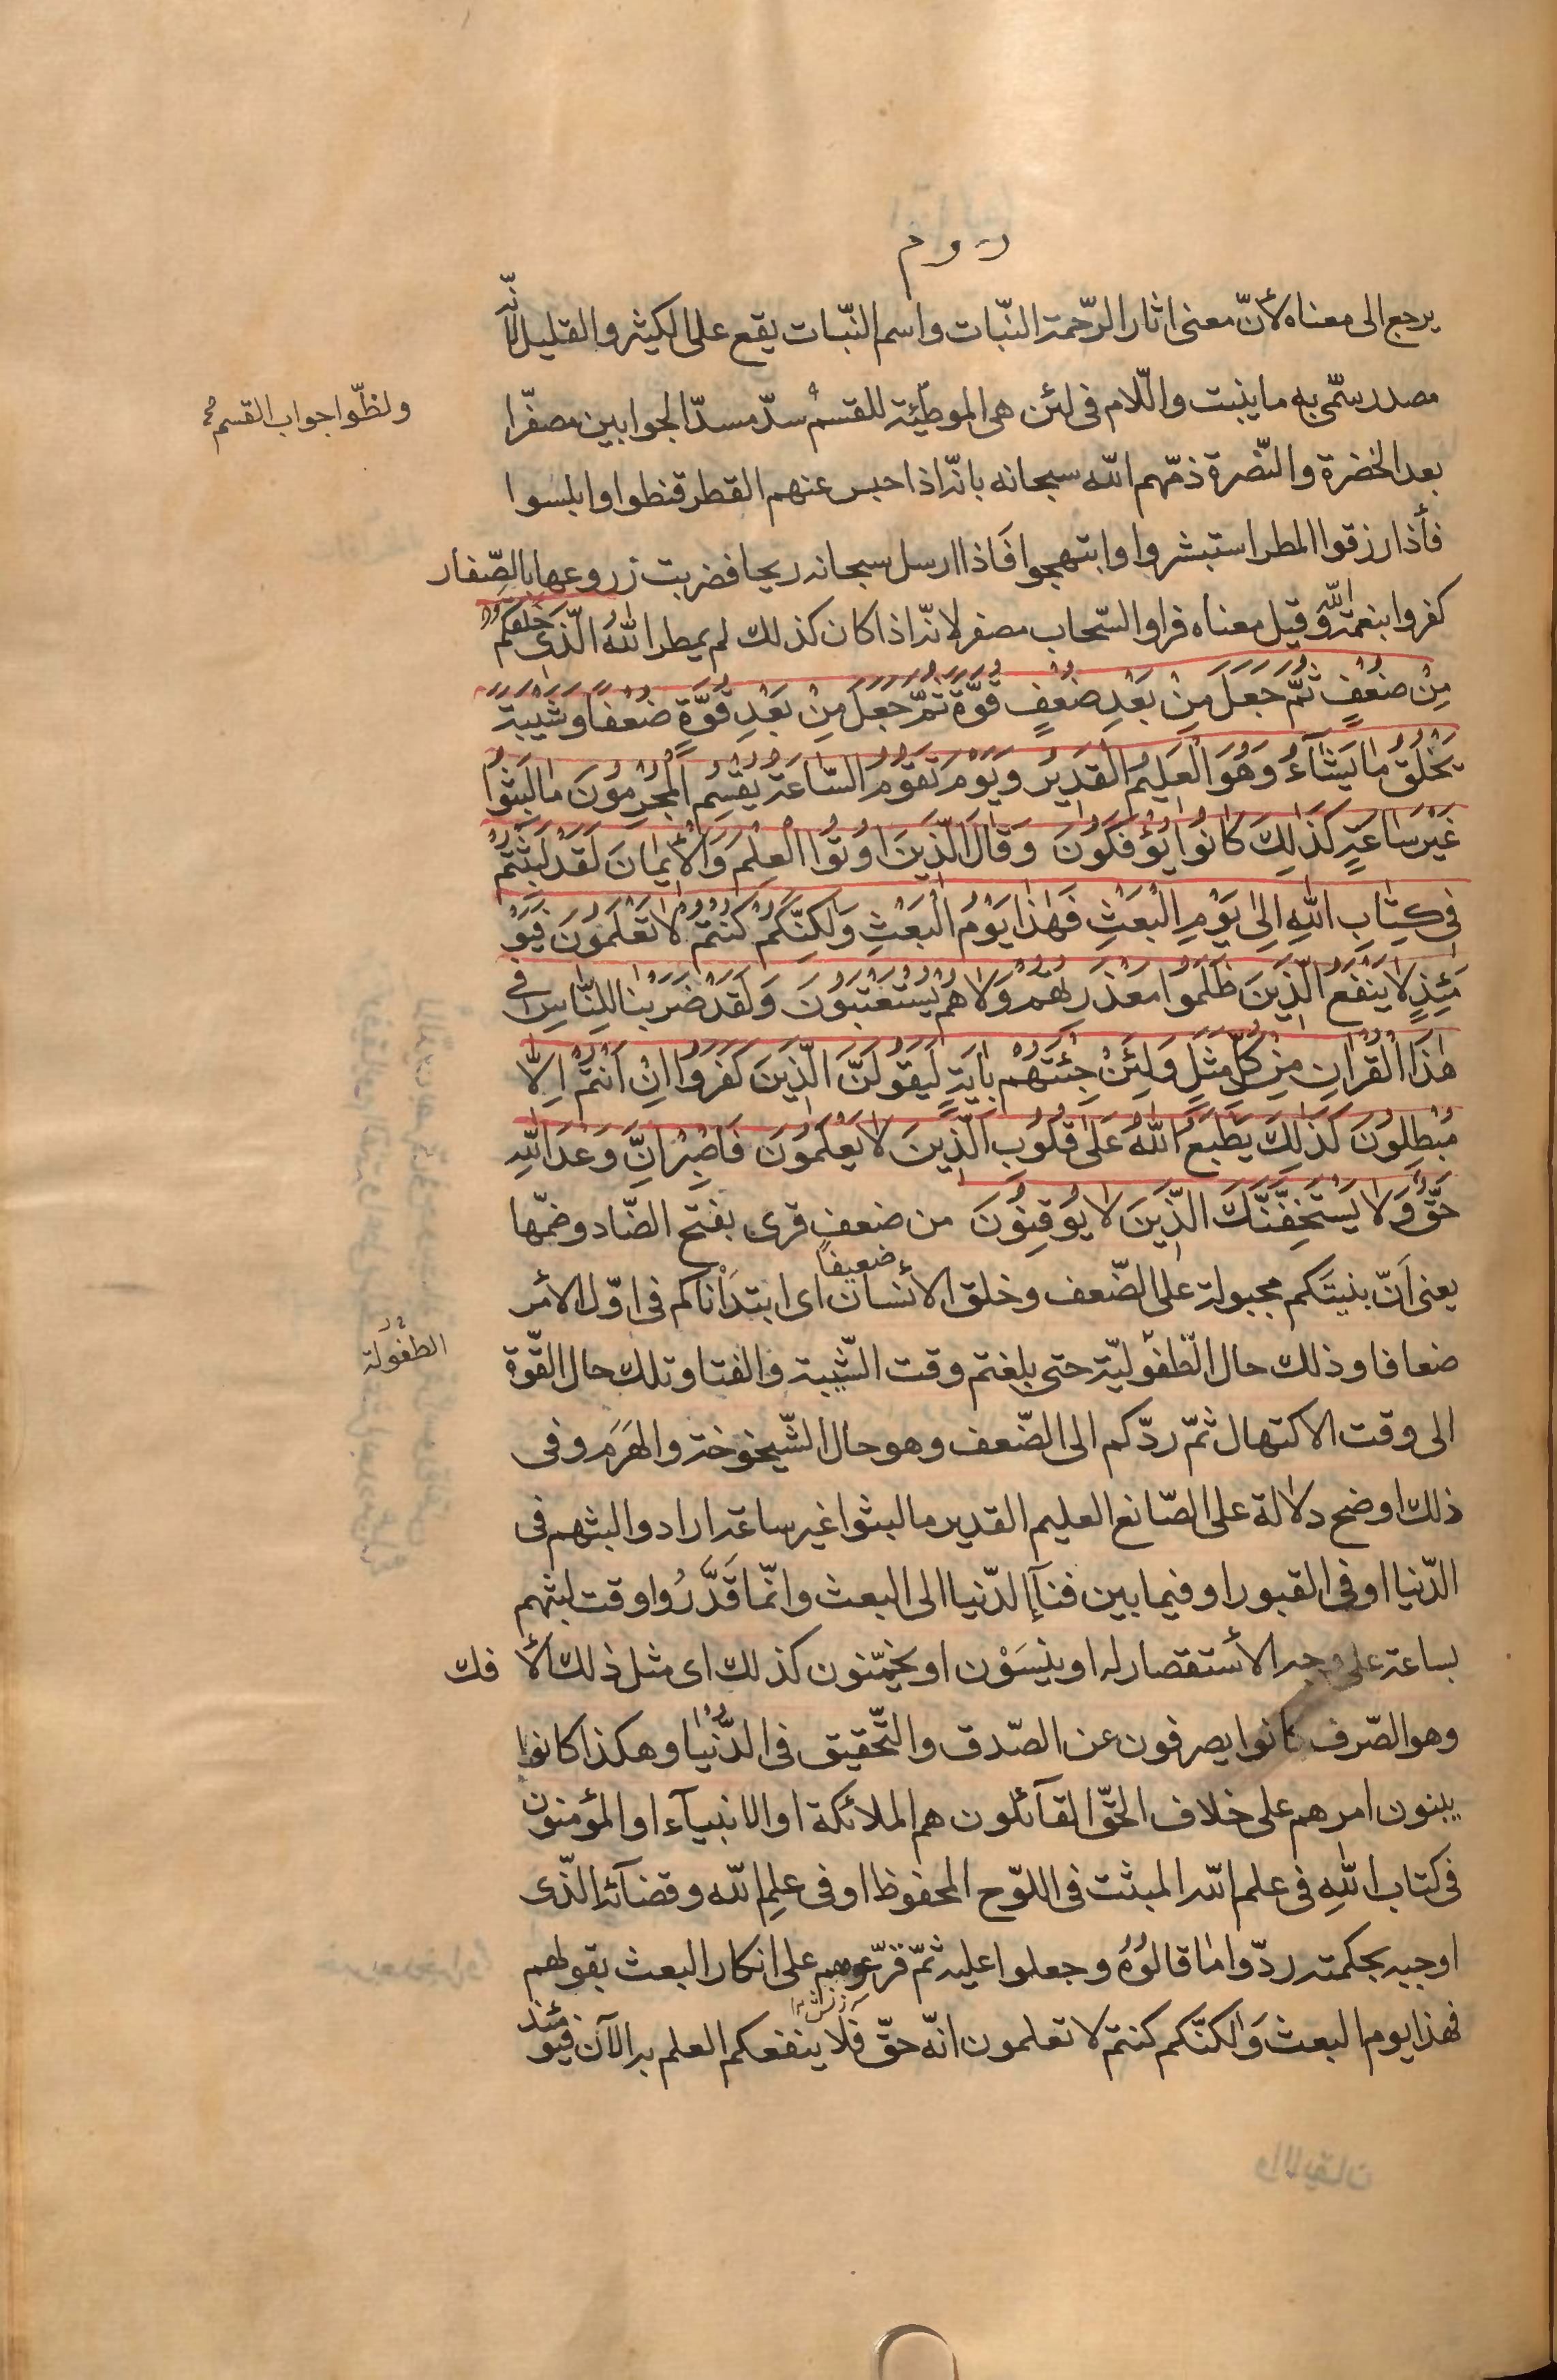 روم
يرجع الى معناه لأنّ معنى اثار الرّحمة النّبات واسم النّبات يقع على الكثير والقليل لأنّه
مصدر سمّى به ما ينبت واللّام فى لئن هى الموطّئة للقسم سدّ مسدّ الجوابين مصفرّا
ولظلّوا جواب القسم
بعد الخضرة والنّضرة ذمّهم اللّه سبحانه بانّه اذا حبس عنهم القطر قنطوا وابلسوا
فأذا رزقوا المطر استبشروا وابتهجوا فَاذا ارسل سبحانه ريحا فضربت زروعها بالصّفار
كفروا بنعمة اللّه وقيل معناه فراوا السّحاب مصفر لانّه اذا كان كذلك لم يمطر اَللّٰهُ الَّذى خَلَقَكُمْ
مِنْ ضُعْفٍ ثُمَّ جَعَلَ مِنْ بَعْدِ ضُعْفٍ قُوَّةً ثُمَّ جَعَلَ مِنْ بَعْدِ قُوَّةٍ ضُعْفًا وَشَيْبَةً
يَخْلُقُ مٰا يَشٰآءُ وَهُوَ الْعَلِيمُ الْقَدِيرُ وَيَوْمَ تَقُومُ السّٰاعَةُ يُقْسِمُ الْمُجْرِمُونَ مٰا لَبِثُوا
غَيْرَ سٰاعَةٍ كَذٰلِكَ كٰانُوا يُؤْفَكُونَ وَقٰالَ الَّذِينَ اوُتُوا الْعِلْمَ وَالْأيمٰانَ لَقَدْ لَبِثْتُمْ
فِى كِتٰابِ اللّٰهِ اِلىٰ يَوْمِ الْبَعْثِ فَهٰذٰا يَوْمُ الْبَعْثِ وَلٰكِنَّكُمْ كُنْتُمْ لٰا تَعْلَمُونَ فَيَوْ
مَئِذٍ لٰا يَنْفَعُ الَّذِينَ ظَلَمُوا مَعْذِرَتُهُمْ وَلٰا هُمْ يُسْتَعْتَبُونَ وَلَقَدْ ضَرَبْنٰا لِلنّٰاسِ فِى
هٰذَا الْقُرْاٰنِ مِنْ كُلِّ مَثَلٍ وَلَئِنْ جِئْتَهُمْ بِاٰيَةٍ لَيَقُولَنَّ الَّذِينَ كَفَرُوا اِنْ اَنْتُمْ اِلّٰا
مُبْطِلُونَ كَذٰلِكَ يَطْبَعُ اللّٰهُ عَلىٰ قُلُوبِ الَّذِينَ لٰا يَعْلَمُونَ فَاصْبِرْ اِنَّ وَعْدَ اللّٰهِ
حَقٌّ وَلٰا يَسْتَخِفَّنَّكَ الَّذِينَ لٰا يُوقِنُونَ من ضعف قرى بفتح الضّاد وضمّها
يعنى اَنّ بنيتَكم مجبولة على الضّعف وخلق الأنسان ضعيفاً اى ابتدَأناكم فى اوّل الأمر
ضعافا وذلك حال الطّفوليّة حتى بلغتم وقت الشّبيبة والفتا وتلك حال القّوة
الطفُولة
الى وقت الاكتهال ثمّ ردّكم الى الضّعف وهو حال الشّيخوخة والهَرَم وفى
ذلك اوضح دلالة على الصّانع العليم القدير ما لبثوا غير ساعة ارادوا لبثهم فى
الدّنيا او فى القبور او فيما بين فنآء الدّنيا الى البعث وانّما قَدَّرُوا وقت لبثهم
بساعة على وجه الأستقصار له او ينسَوْن او يخمّنون كذلك اى مثل ذلك الأفك
وهو الصّرف كانوا يصرفون عن الصّدق والتّحقيق فى الدُّنْيٰا وهكذا كانوا
يبنون امرهم على خلاف الحقّ القآئلون هم الملائكة او الانبيآء او المؤمنون
فى كتاب اللّٰهِ فى علم اللّه المثبت فى اللوّح المحفوظ او فى علمِ اللّه وقضآئه الذّى
اوجبه بحكمته ردّوا مٰا قالوُهُ وجعلوا عليه ثمّ قرّعوهم على انكار البعث بقولهم
فهذا يوم البعث وَلٰكنّكم كنتم لا تعلمون انّه حقّ فَلا ينفعكم العلم به الآن فيومئذ